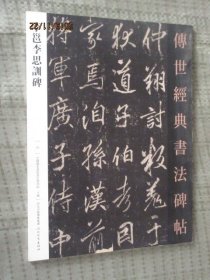 傳世經典書法碑帖
仲翔討叛羌于
狄道子伯考因
家焉洎孫漢前
將軍廣子侍中
邕李思訓碑